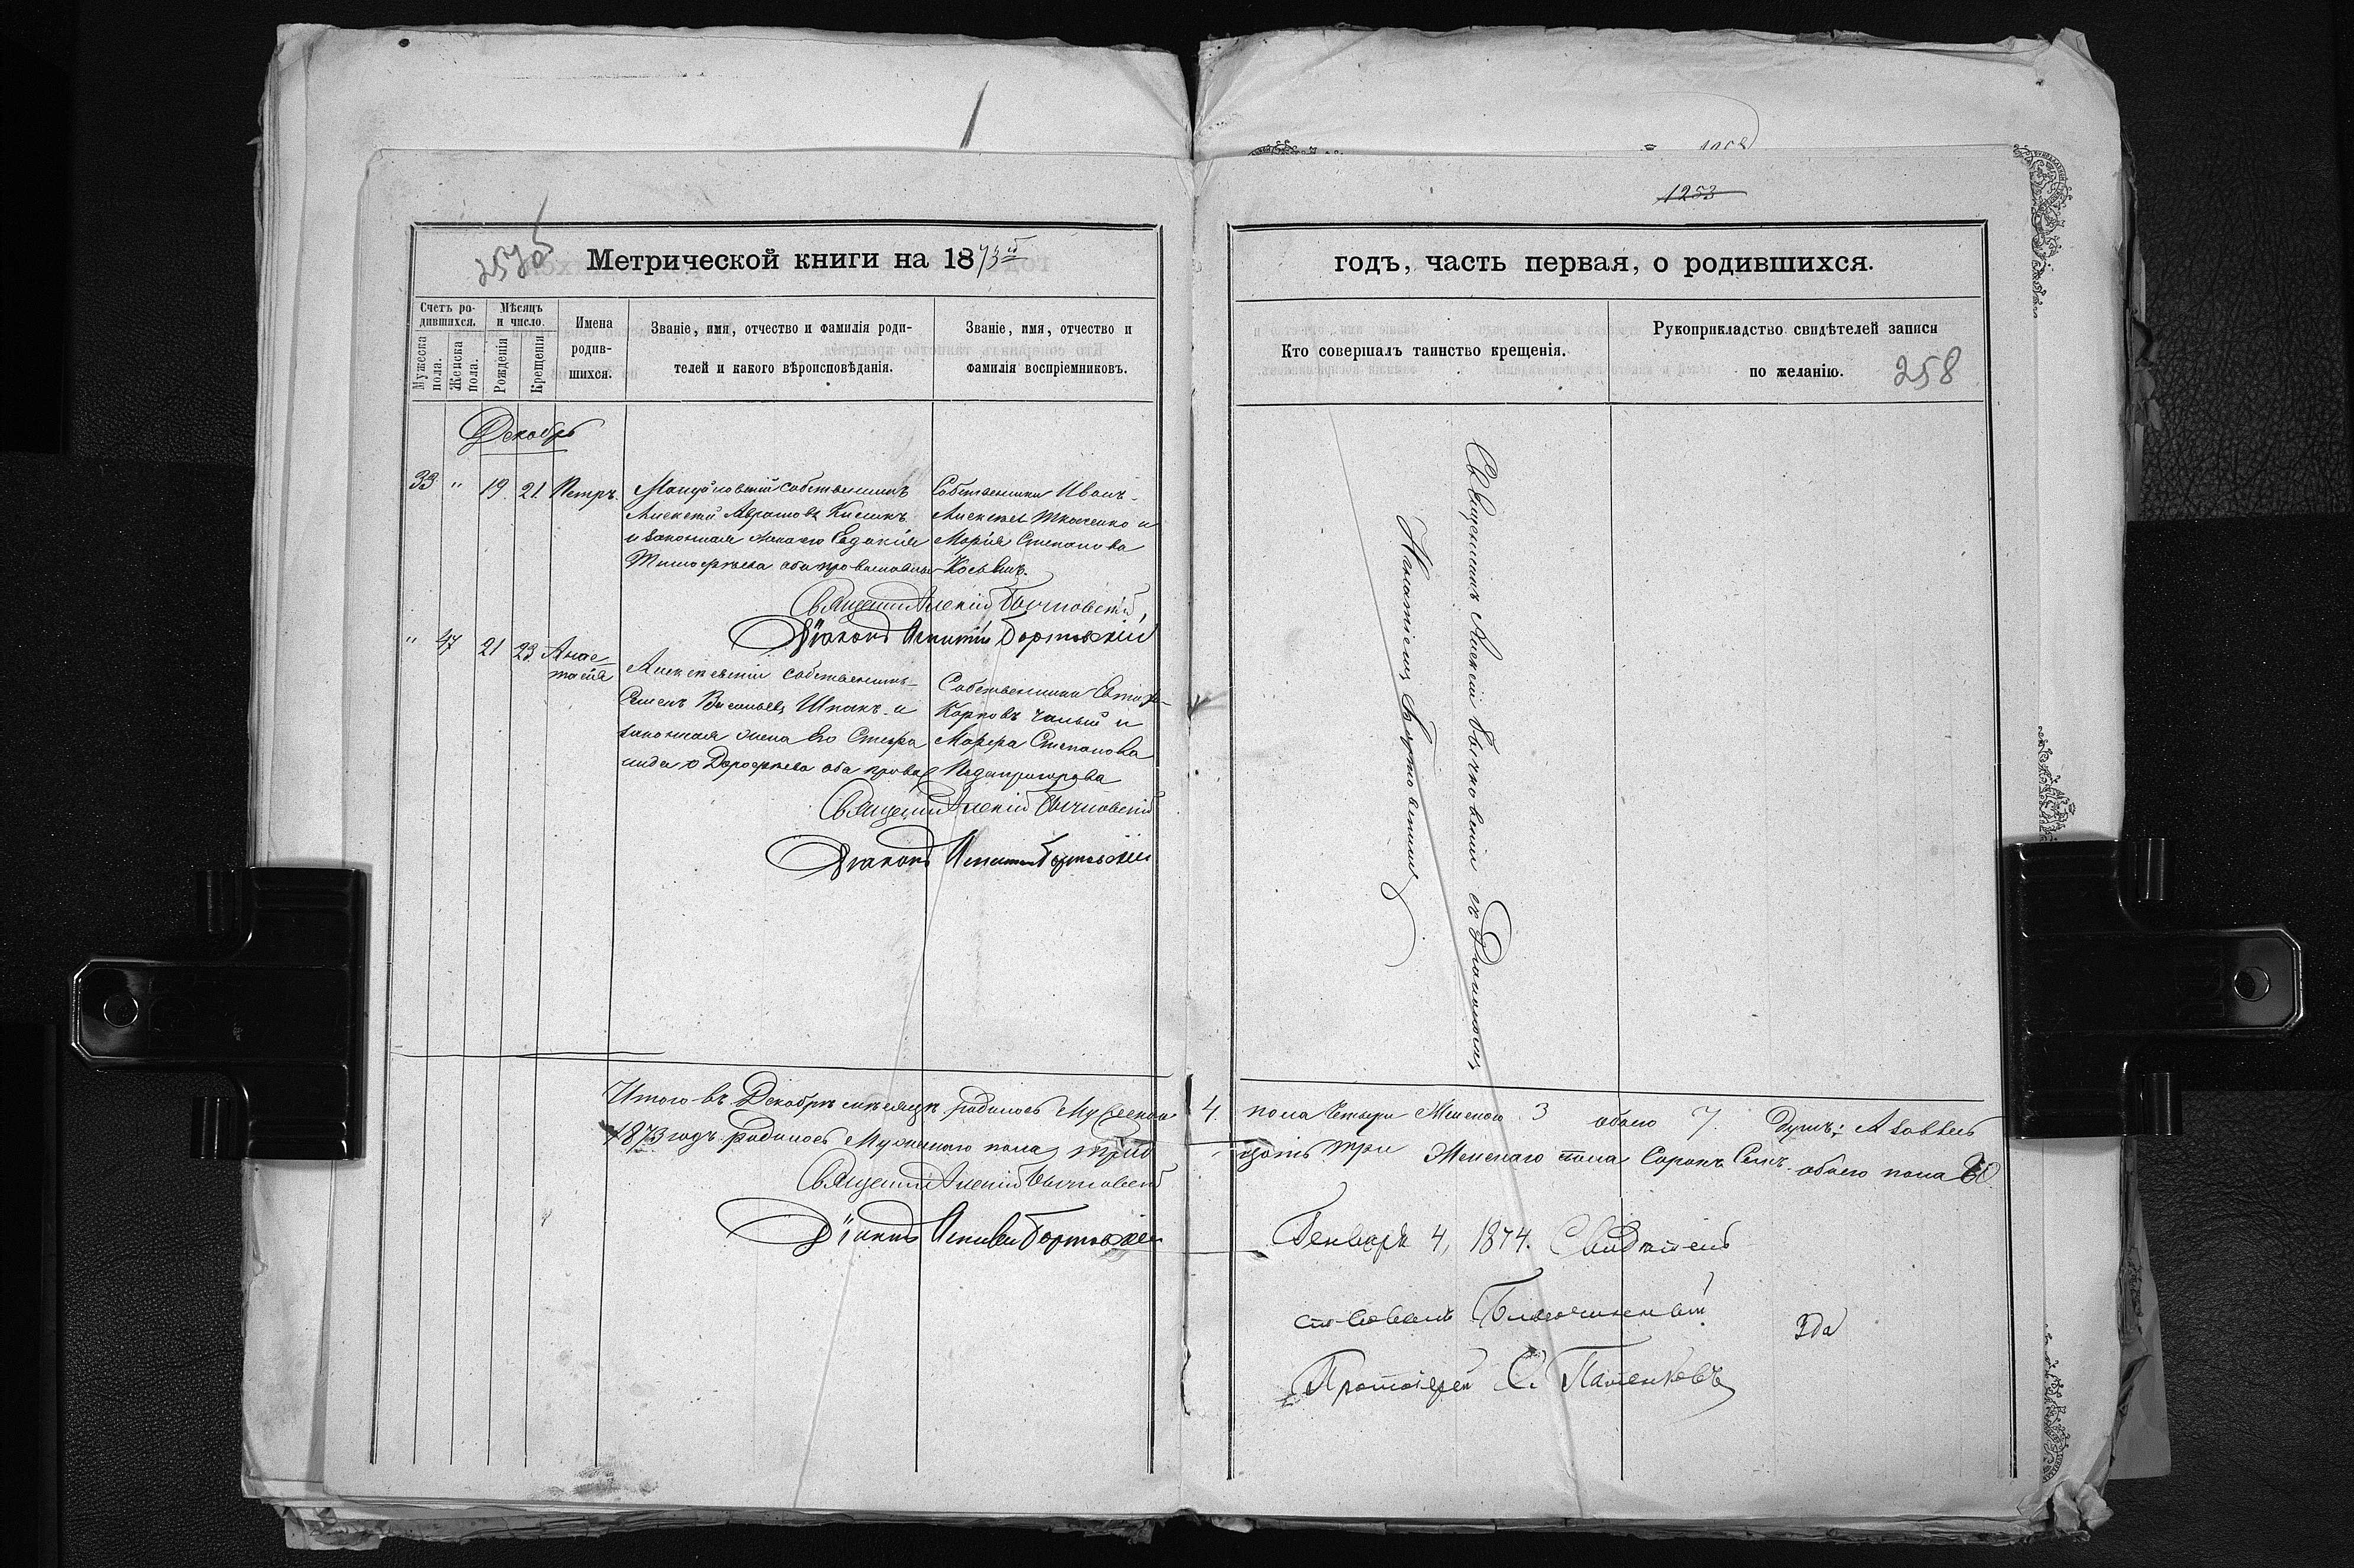 1253
257об
Метрической книги на 1873й
годъ, часть первая, о родившихся.
Счетъ родившихся.
Мужеска пола.
Женска пола.
Мѣсяцъ и число.
Рожденія
Крещенія
Имена родившихся.
Званіе, имя, отчество и фамилія родителей и какого вѣроисповѣданія.
Званіе, имя, отчество и фамилія воспріемниковъ.
Кто совершалъ таинство крещенія.
Рукоприкладство свидѣтелей записи по желанію.
258
Декабрь
33 " 19. 21 Петръ.
собственникъ
Алексѣй Аврамовъ Киликъ
и законная жена его Евдокія
Тимофѣева оба православные
Собственники Иванъ
Алексѣевъ Ткаченко и
Марія Степанова
Священникъ Алексій Бычковскій
Діаконъ Игнатій Бортовскій
" 47 21 23 Анастасія
Алексѣевскій собственникъ
Семенъ Васильевъ Шпакъ и
законная жена его Стефанида
Дорофѣева оба прав
Собственники
Карповъ Чалый и
Марфа Степанова
Подопригорова
Священникъ Алексій Бычковскій
Діаконъ Игнатій Бортовскій
Священникъ Алексій Бычковскій съ Діакономъ
Игнатіемъ Бортовскимъ
Итого въ Декабрѣ мѣсяцѣ родилось Мужескаго 4. пола четыри Женскаго 3 обоего 7. душъ; А во весь
1873 годъ родилось Мужескаго пола тридцать три Женскаго пола Сорокъ Семь обоего пола 80.
Священникъ Алексій Бычковскій
Діаконъ Игнатій Бортовскій
Генваря 4, 1874. Свидѣтель
ствовалъ Благочинный
Протоіерей С.